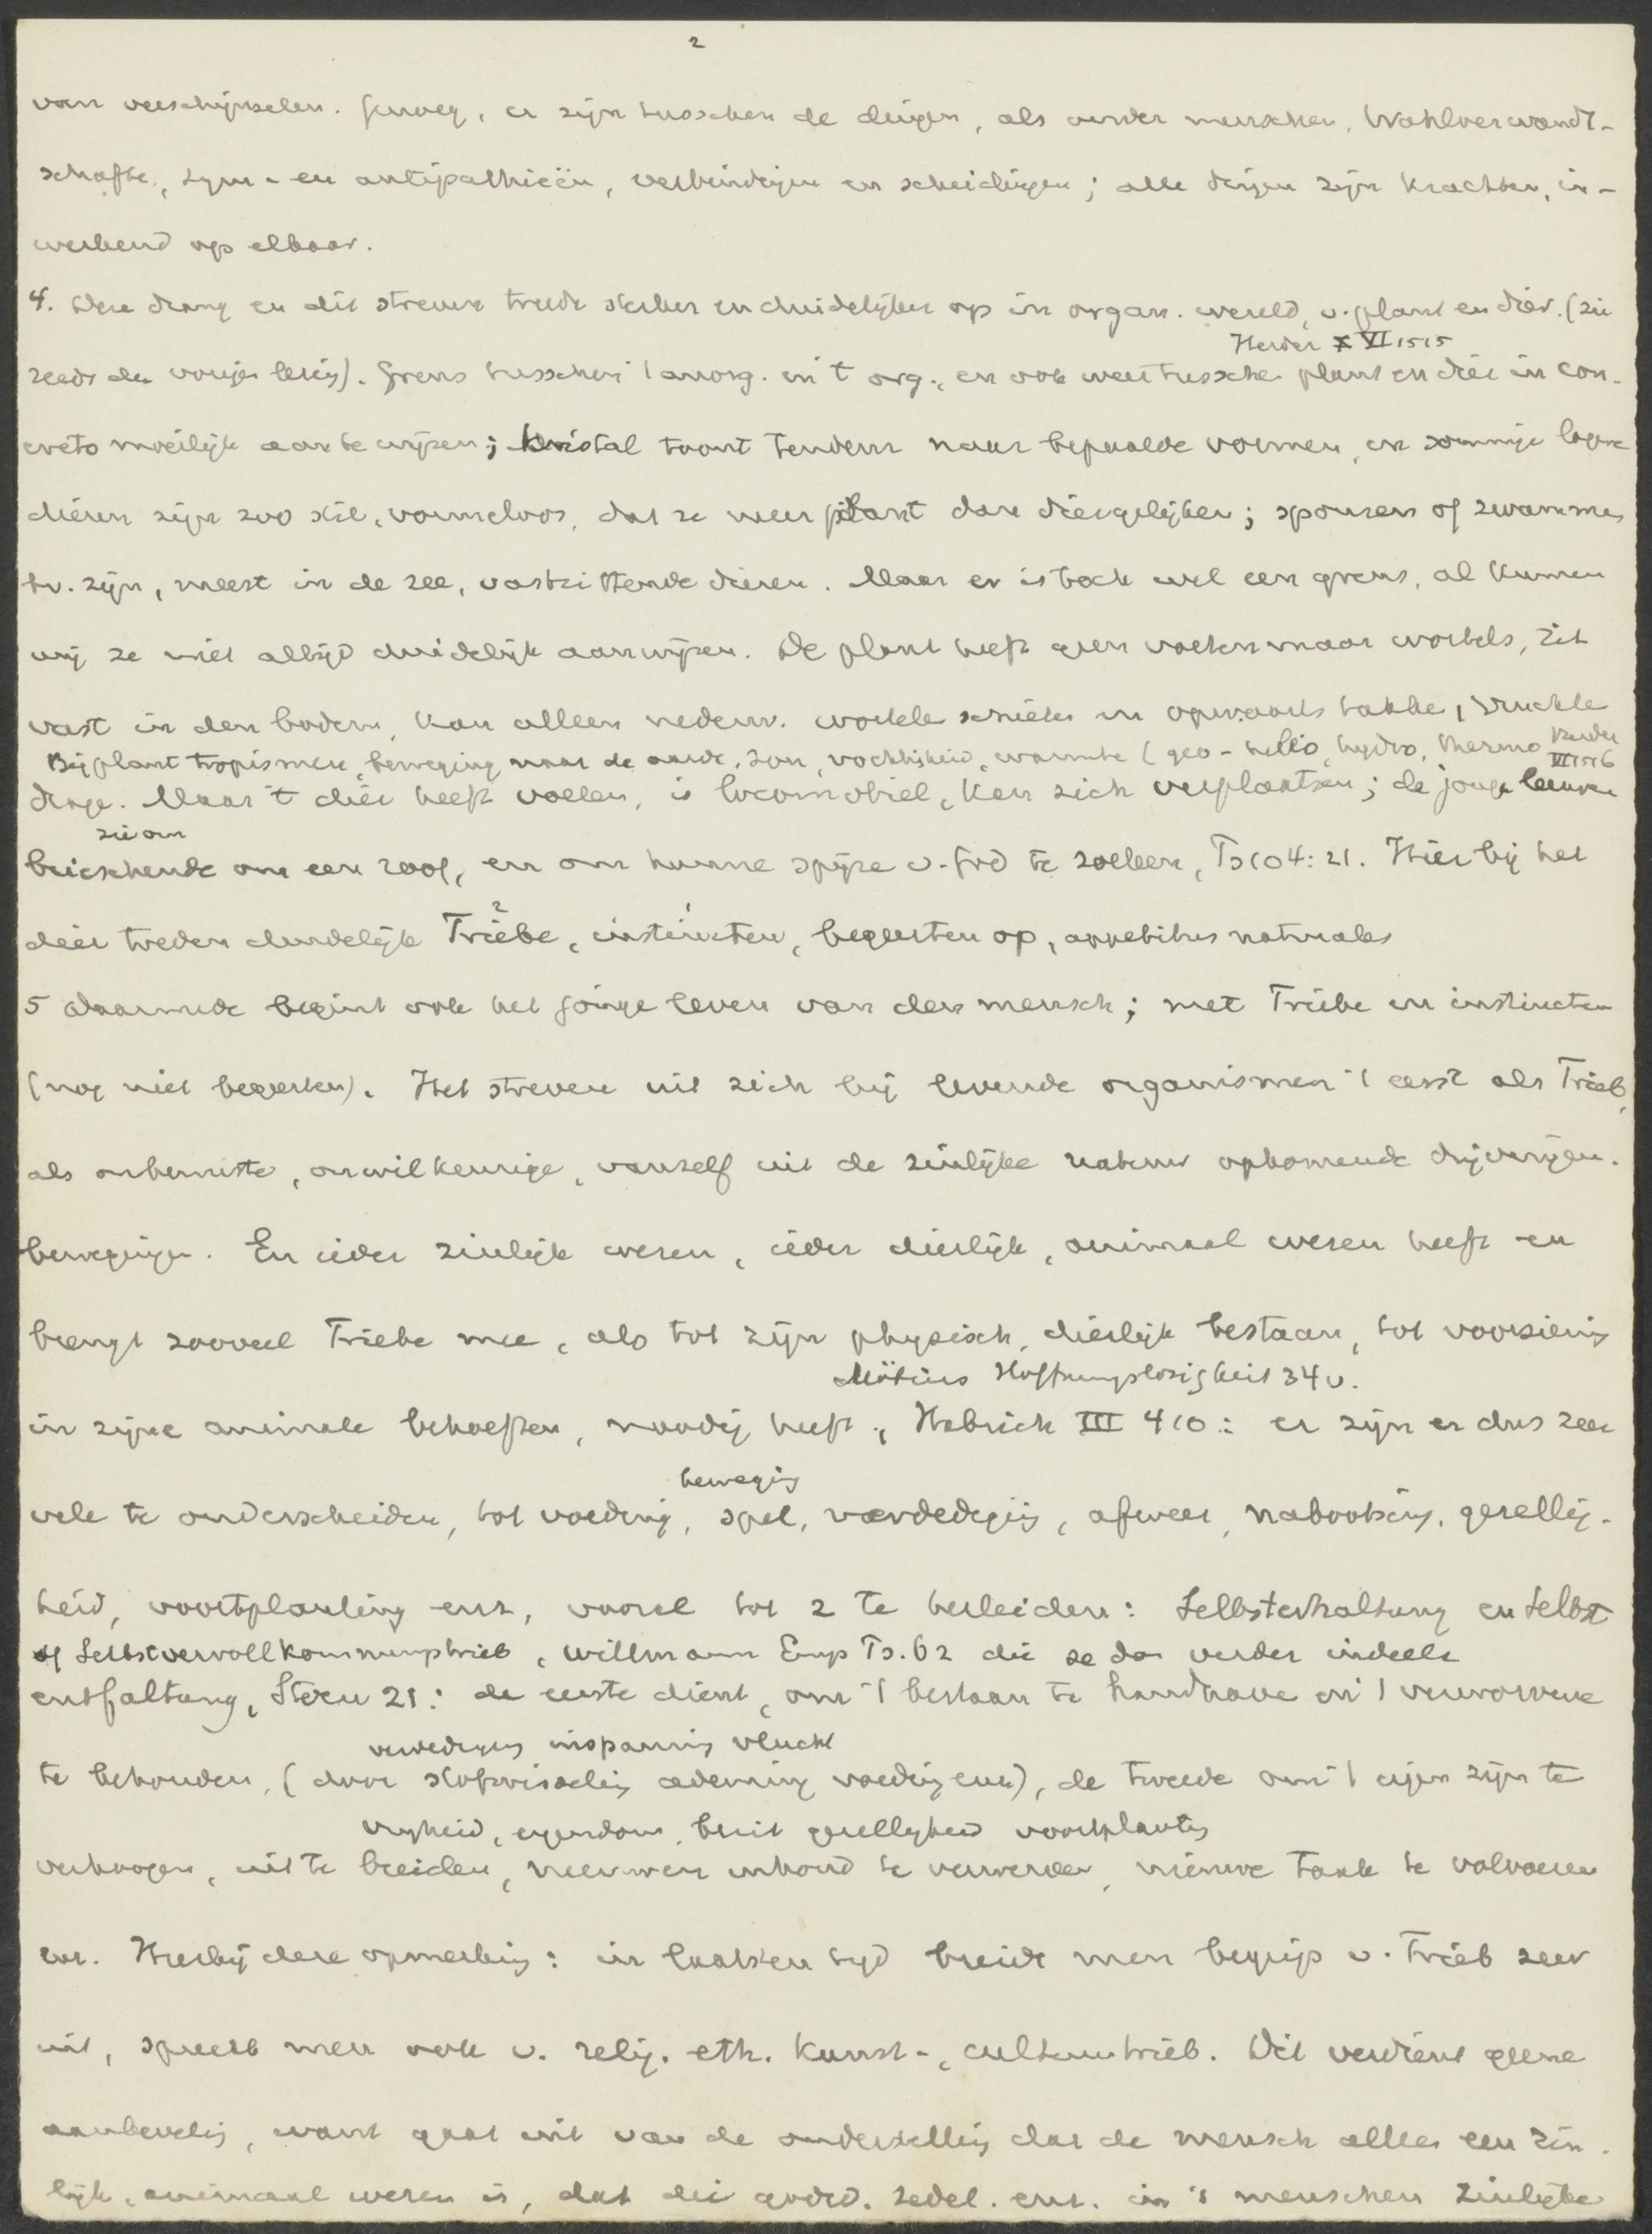 2
van verschijnselen. Genoeg, er zijn tusschen de dingen, als onder menschen, Wahlverwandt-
schafte, sym- en antipathieën, verbindingen en scheidingen; alle dingen zijn krachten, in-
werkend op elkaar.
4. Deze drang en dit streven treedt sterker en duidelijker op in organ. wereld, v. plant en dier. (zie
Herder VI 1515
reeds de vorige lezing). Grens tusschen 't anorg. en 't org., en ook weer tusschen plant en dier in con-
creto moeilijk aan te wijzen; kristal toont tendenz naar bepaalde vormen, en sommige lagere
dieren zijn zoo stil, vormeloos, dat ze meer plant dan dier gelijken; sponzen of zwammen
bv. zijn, meest in de zee, vastzittende dieren. Maar er is toch wel een grens, al kunnen
wij ze niet altijd duidelijk aanwijzen. De plant heeft geen voeten maar wortels, zit
vast in den bodem, kan alleen nederw. wortels schieten en opwaarts takken, vruchten
Bij plant tropismen, beweging naar de aarde, zon, vochtigheid, warmte (geo- helio, hydro, thermo Herder VI 1516
drage. Maar 't dier heeft voeten, is locomobiel, kan zich verplaatsen; de jonge leeuwen
zie om
brieschende om een roof, en om hunne spijze v. God te zoeken, Ps 104:21. Hier bij het
2 1
dier treden duidelijk Triebe, instincten, begeerten op, appetitus naturales
5 Daarmede begint ook het jonge leven van den mensch; met Triebe en instincten
(nog niet begeerten). Het streven uit zich bij levende organismen 't eerst als Trieb,
als onbewuste, onwillkeurige, vanzelf uit de zinlijke natuur opkomende drijvingen.
bewegingen. En ieder zinlijk wezen, ieder dierlijk, animaal wezen heeft en
brengt zooveel Triebe mee, als tot zijn physisch, dierlijk bestaan, tot voorziening
Möbius Hoffnungslosigkeit 34 v.
in zijne animale behoeften, noodig heeft, Habrich III 410: er zijn er dus zeer
beweging
vele te onderscheiden, tot voeding, spel, verdediging, afweer, nabootsing, gezellig-
heid, voortplanting enz, vooral tot 2 te herleiden: Selbsterhaltung en Selbst
of Selbstvervollkommnungstrieb, Willmann Emp Ps. 62 die ze dan verder indeelt
entfaltung, Stern 21: de eerste dient, om 't bestaan te handhaven en 't verworvene
verdediging inspanning vlucht
te behouden, (door stofwisseling ademing voeding enz), de tweede om 't eigen zijn te
vrijheid, eigendom, bezit gezelligheid voortplanting
verhoogen, uit te breiden, nieuwen inhoud te verwerven, nieuwe taak te volvoeren
enz. Hierbij deze opmerking: in laatsten tijd breidt men begrip v. Trieb zeer
uit, spreekt men ook v. relig. eth. kunst-, cultuurtrieb. Dit verdient geene
aanbeveling, want gaat uit van de onderstelling dat de mensch alleen een zin-
lijk, animaal wezen is, dat die godsd. zedel. enz. in 's menschen zinlijke